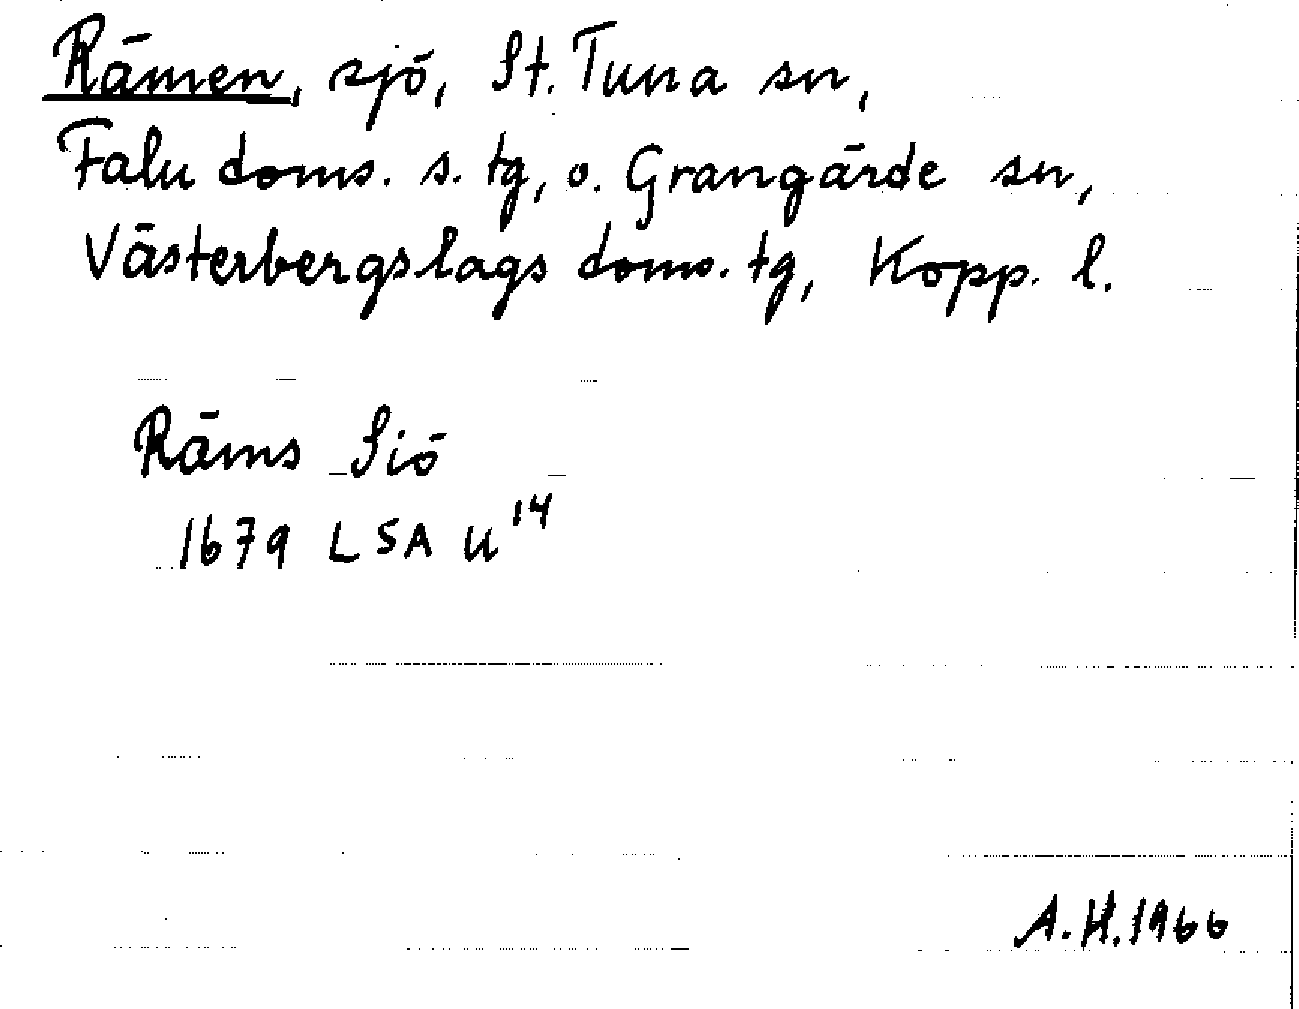 Rämen, sjö, St. Tuna sn,
Falu doms. s. tg, o. Grangärde sn,
Västerbergslags doms. tg, Kopp. l.
Räms Siö
1679 LSA U¹⁴
A.H.1966